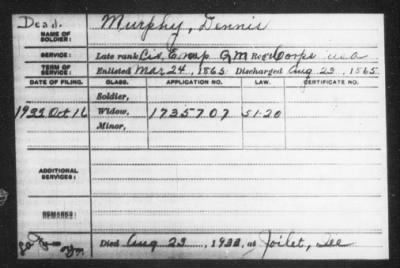 Dead.
NAME OF SOLDIER: Murphy, Dennis
SERVICE: Late rank Civ. Emp. Q M Reg't Corps U.S.A
TERM OF SERVICE: Enlisted Mar 24, 1865 Discharged Aug 23, 1865
DATE OF FILING. CLASS. APPLICATION NO. LAW. CERTIFICATE NO.
Soldier,
Oct 16 Widow, 1735707 51.20
Minor,
ADDITIONAL SERVICES:
REMARKS:
Died Aug 23, at Joilet, Ill